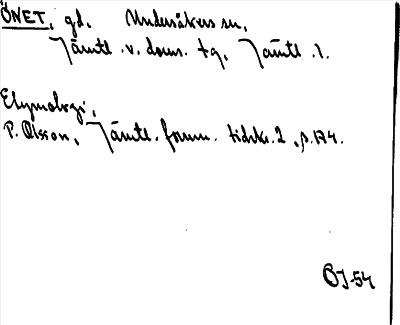 ÖNET, gd. Undersåkers sn,
Jämtl. v. doms. tg, Jämtl. l.
Etymologi,
P. Olsson, Jämtl. fornm. tidskr. 2, p. 174.
BJ-54